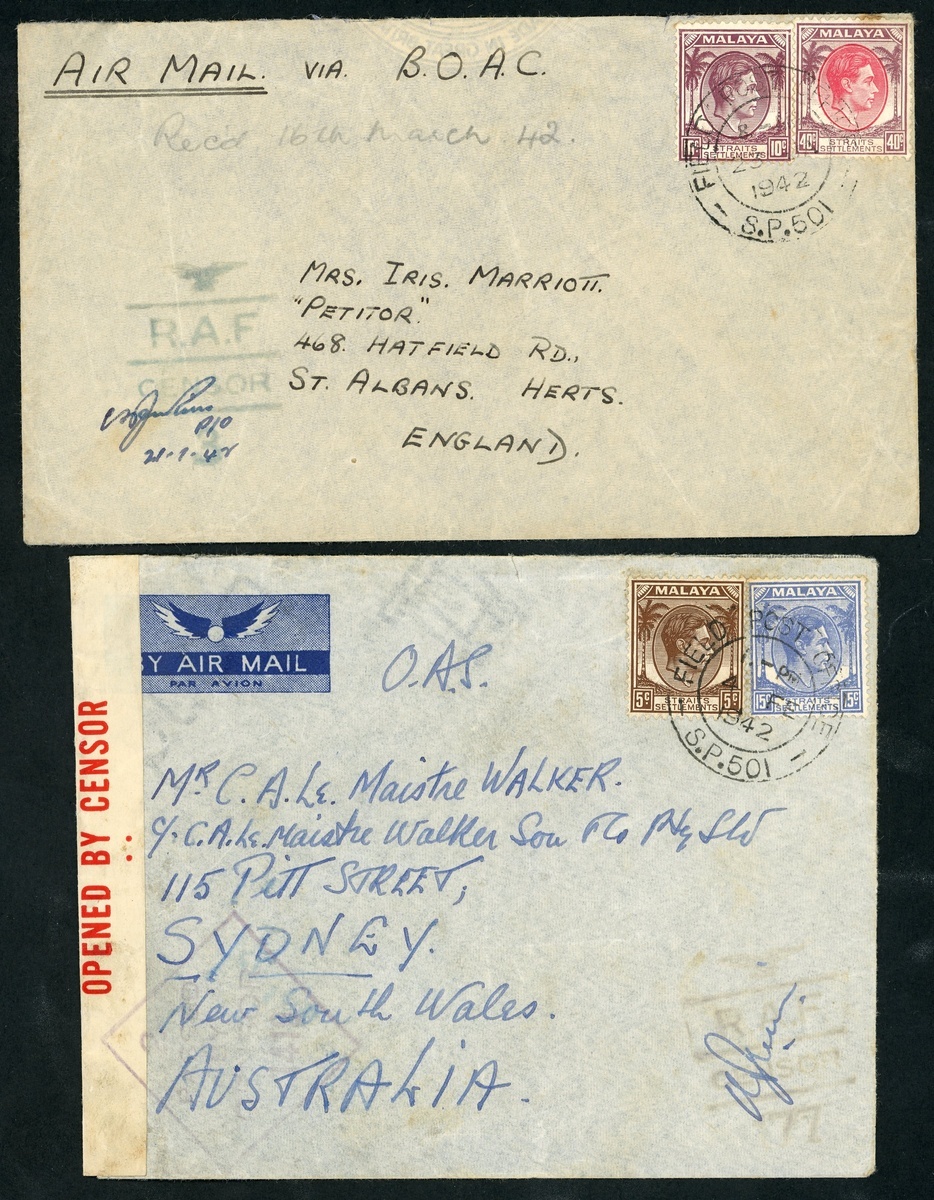 AIR MAIL. VIA. B.O.A.C.
Rec'd 16th March 42.
MALAYA
10c
STRAITS SETTLEMENTS
MALAYA
40c 40c
STRAITS SETTLEMENTS
FIELD
1942
S.P.501
MRS. IRIS. MARRIOTT.
"PETITOR."
468. HATFIELD RD.,
ST. ALBANS. HERTS.
ENGLAND.
R.A.F
CENSOR
P/O
21-1-42
BY AIR MAIL
PAR AVION
O.A.S.
MALAYA
5c 5c
STRAITS SETTLEMENTS
MALAYA
15c 15c
STRAITS SETTLEMENTS
FIELD POST OFFICE
1942
S.P.501
OPENED BY CENSOR
Mr C. A. Le. Maistre WALKER.
C/- C.A. Le. Maistre Walker Son
115 Pitt STREET,
SYDNEY.
New South Wales.
AUSTRALIA.
R.A.F.
77